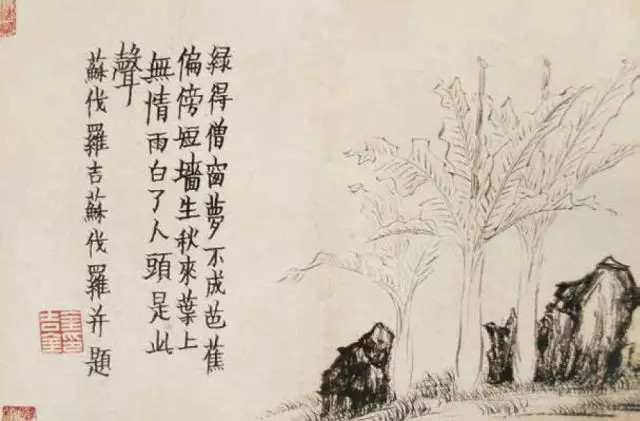 綠得僧窗夢不成芭蕉
偏傍短墻生秋來葉上
無情雨白了人頭是此
聲
蘇伐羅吉蘇伐羅并題